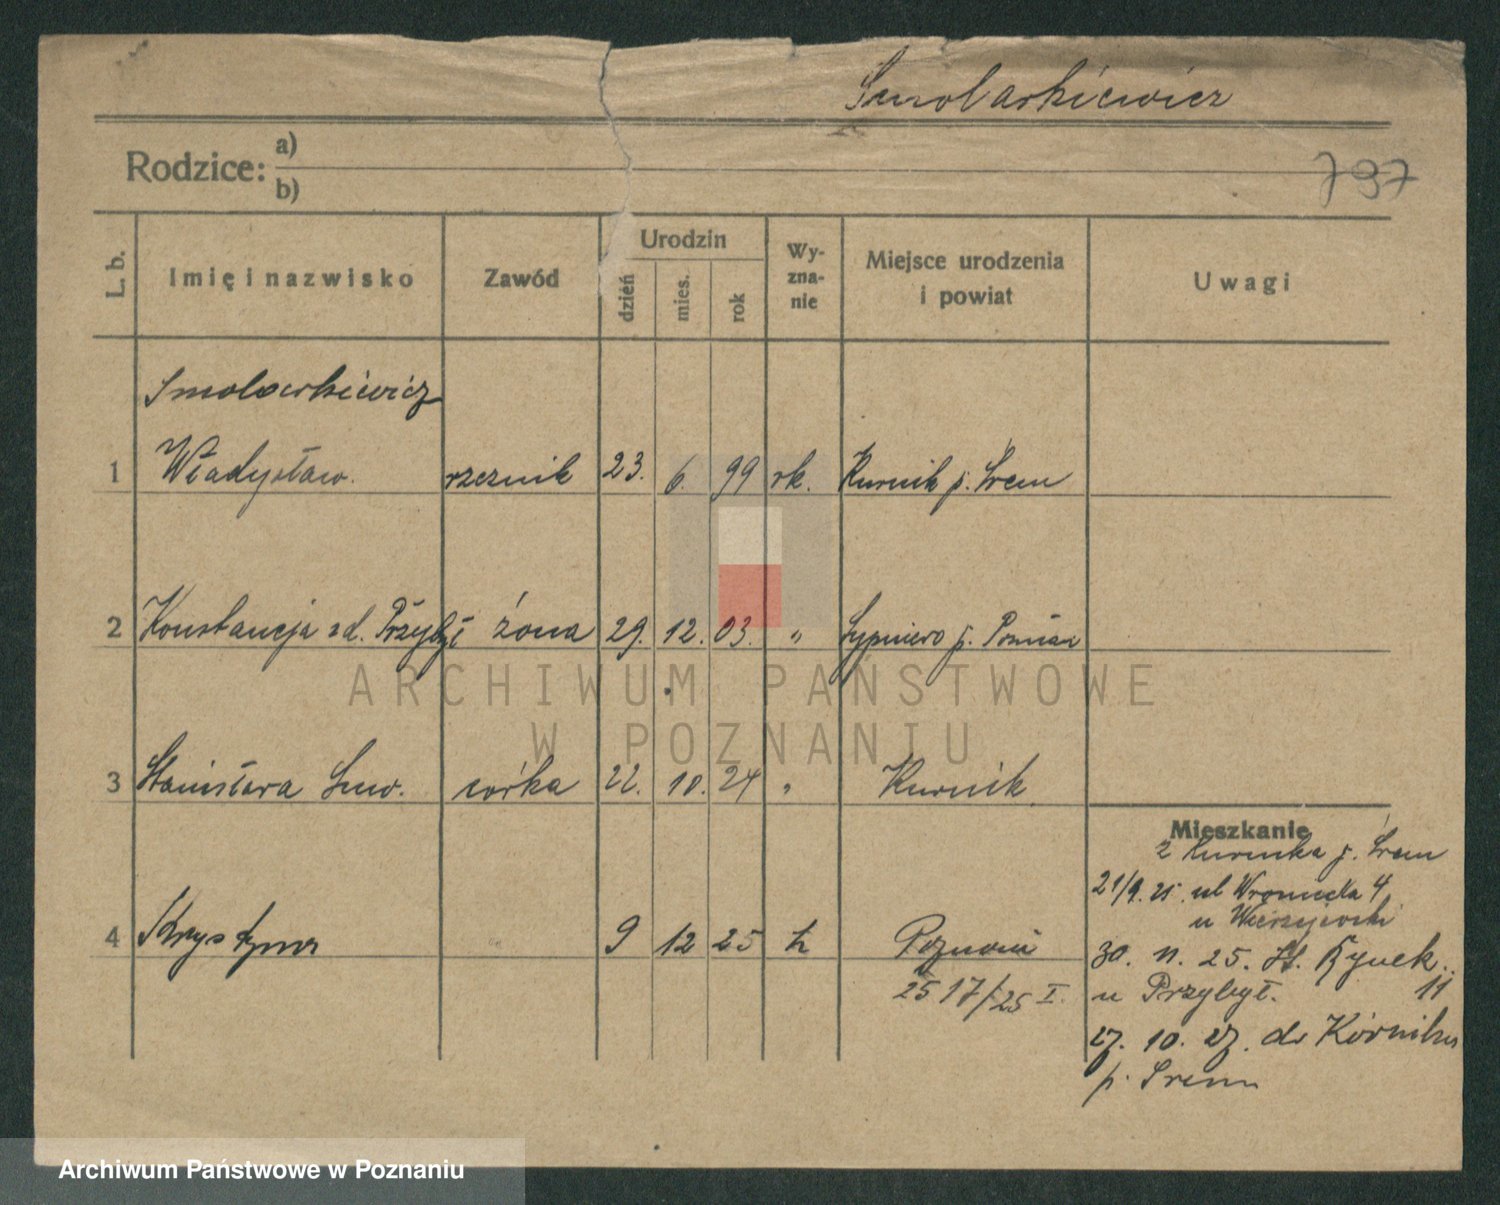 Smolarkiewicz
Rodzice: a)
b)
797
L. b. Imię i nazwisko Zawód Urodzin dzień mies. rok Wy-zna-nie Miejsce urodzenia i powiat Uwagi
Smolarkiewicz
1 Władysław. rzeźnik 23. 6. 99 rk. Kurnik p. Śrem
2 Konstancja zd. Przybył żona 29. 12. 03. " p. Poznań
3 Stanisława Smo. córka 22. 10. 24 " Kurnik
Mieszkanie
z Kurnika p. Śrem
21/9. 25. ul Wroniecka 4
u
4 Krystyna 9 12 25 Poznań
30. 11. 25. St. Rynek
25 17/25 I. u Przybył. 11
27. 10. 27. do Kórnika
p. Śrem
ARCHIWUM PAŃSTWOWE
W POZNANIU
Archiwum Państwowe w Poznaniu